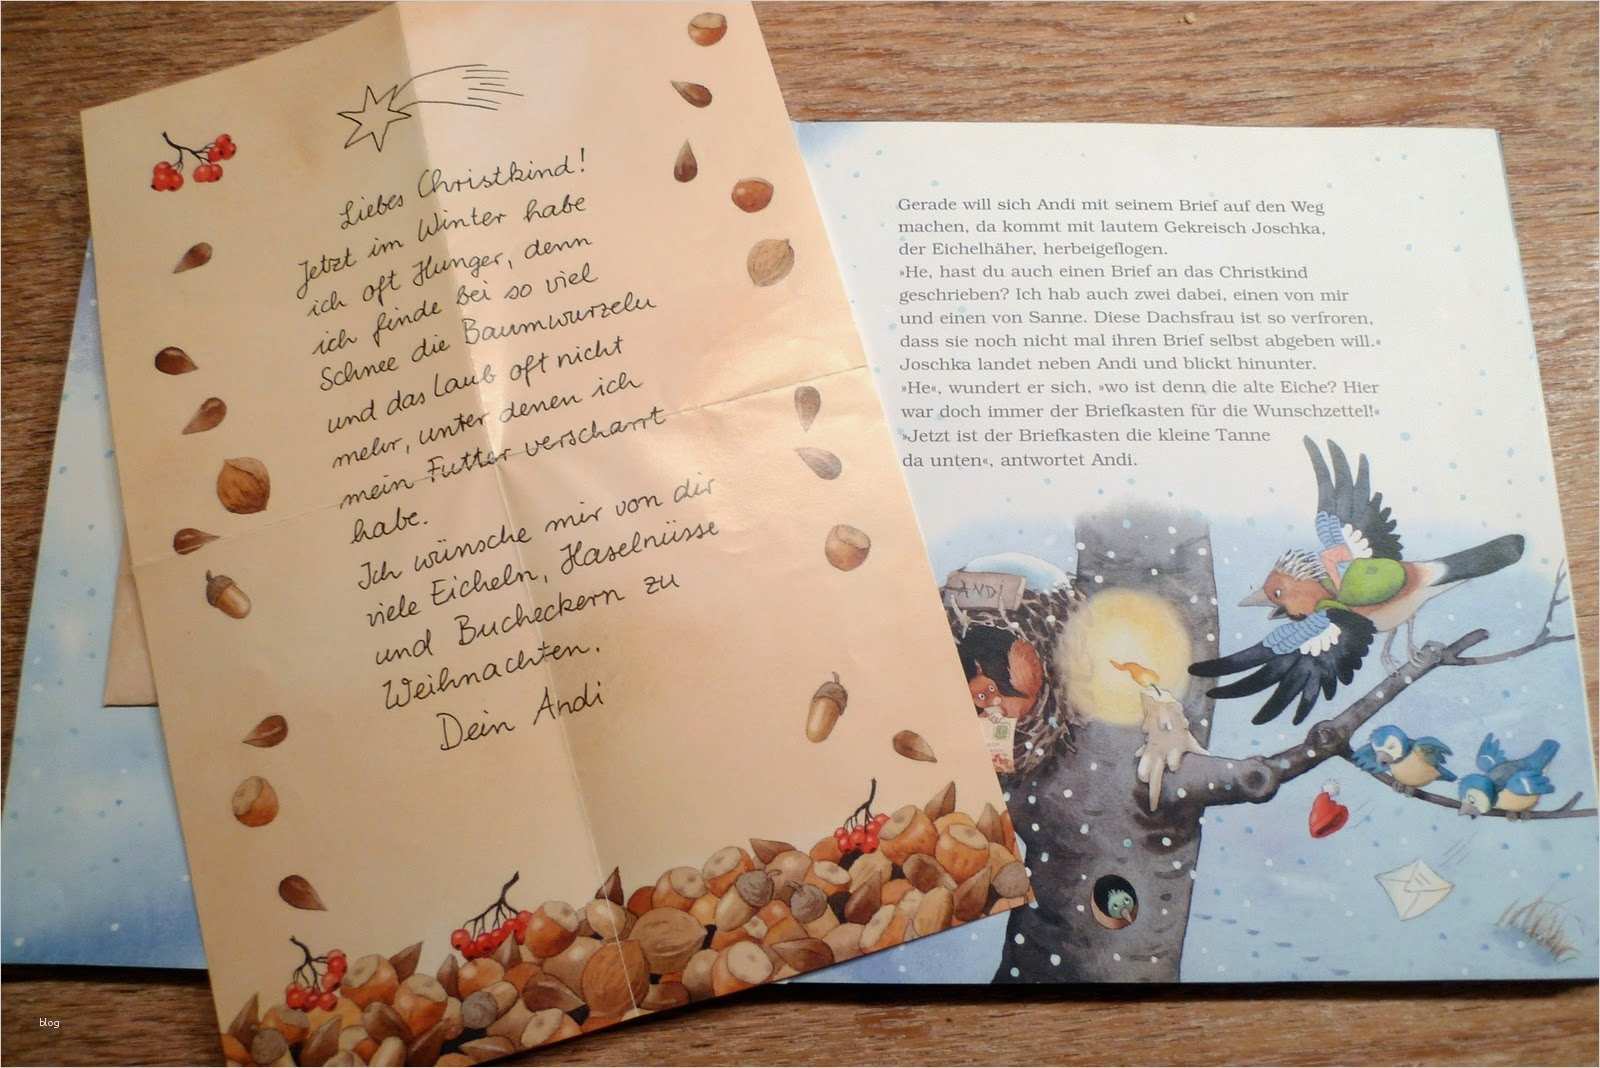 Liebes Christkind!
Jetzt im Winter habe
ich oft Hunger, denn
ich finde bei so viel
Schnee die Baumwurzeln
und das Laub oft nicht
mehr, unter denen ich
mein Futter verscharrt
habe.
Ich wünsche mir von dir
viele Eicheln, Haselnüsse
und Bucheckern zu
Weihnachten.
Dein Andi
Gerade will sich Andi mit seinem Brief auf den Weg
machen, da kommt mit lautem Gekreisch Joschka,
der Eichelhäher, herbeigeflogen.
»He, hast du auch einen Brief an das Christkind
geschrieben? Ich hab auch zwei dabei, einen von mir
und einen von Sanne. Diese Dachsfrau ist so verfroren,
dass sie noch nicht mal ihren Brief selbst abgeben will.«
Joschka landet neben Andi und blickt hinunter.
»He«, wundert er sich, »wo ist denn die alte Eiche? Hier
war doch immer der Briefkasten für die Wunschzettel!«
»Jetzt ist der Briefkasten die kleine Tanne
da unten«, antwortet Andi.
ANDI
blog